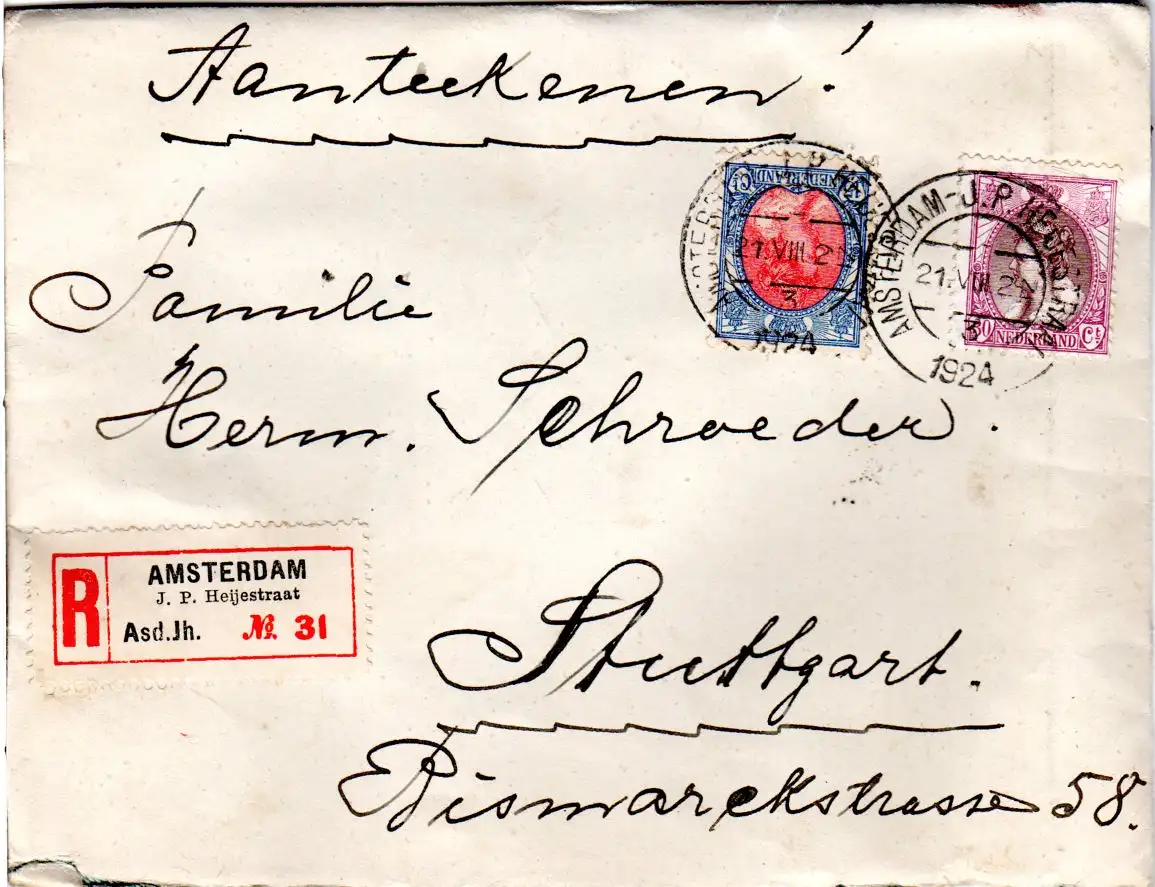 Aanteekenen!
NEDERLAND
21.VIII.2
3
1924
AMSTERDAM-J.P.HEIJESTRA
21.VIII.2
3
1924
30 NEDERLAND Ct
Familie
Herm. Schroeder.
R
AMSTERDAM
J. P. Heijestraat
Asd.Jh. No. 31
Stuttgart.
Bismarckstrasse 58.